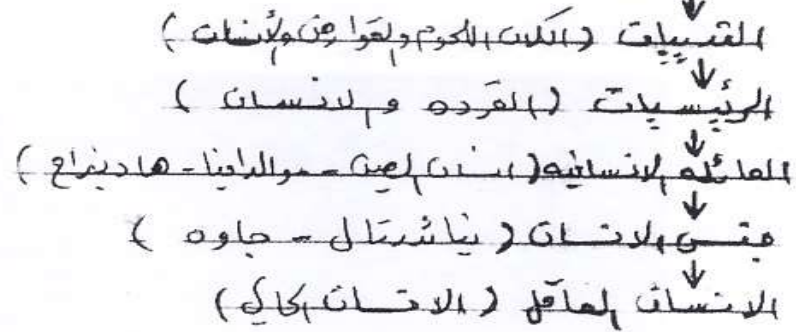 الثدييات (اكلات اللحوم والقوارض والإنسان)
الرئيسيات (القرده والانسان)
العائله الانسانيه (انسان الصين - موالدافيا - هادينراح)
جنس الانسان (نياندرتال - جاوه)
الانسان العاقل (الانسان الحالي)